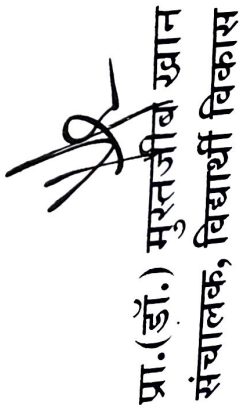 प्रा.(डॉ.) मुस्तजीब खान
संचालक, विद्यार्थी विकास